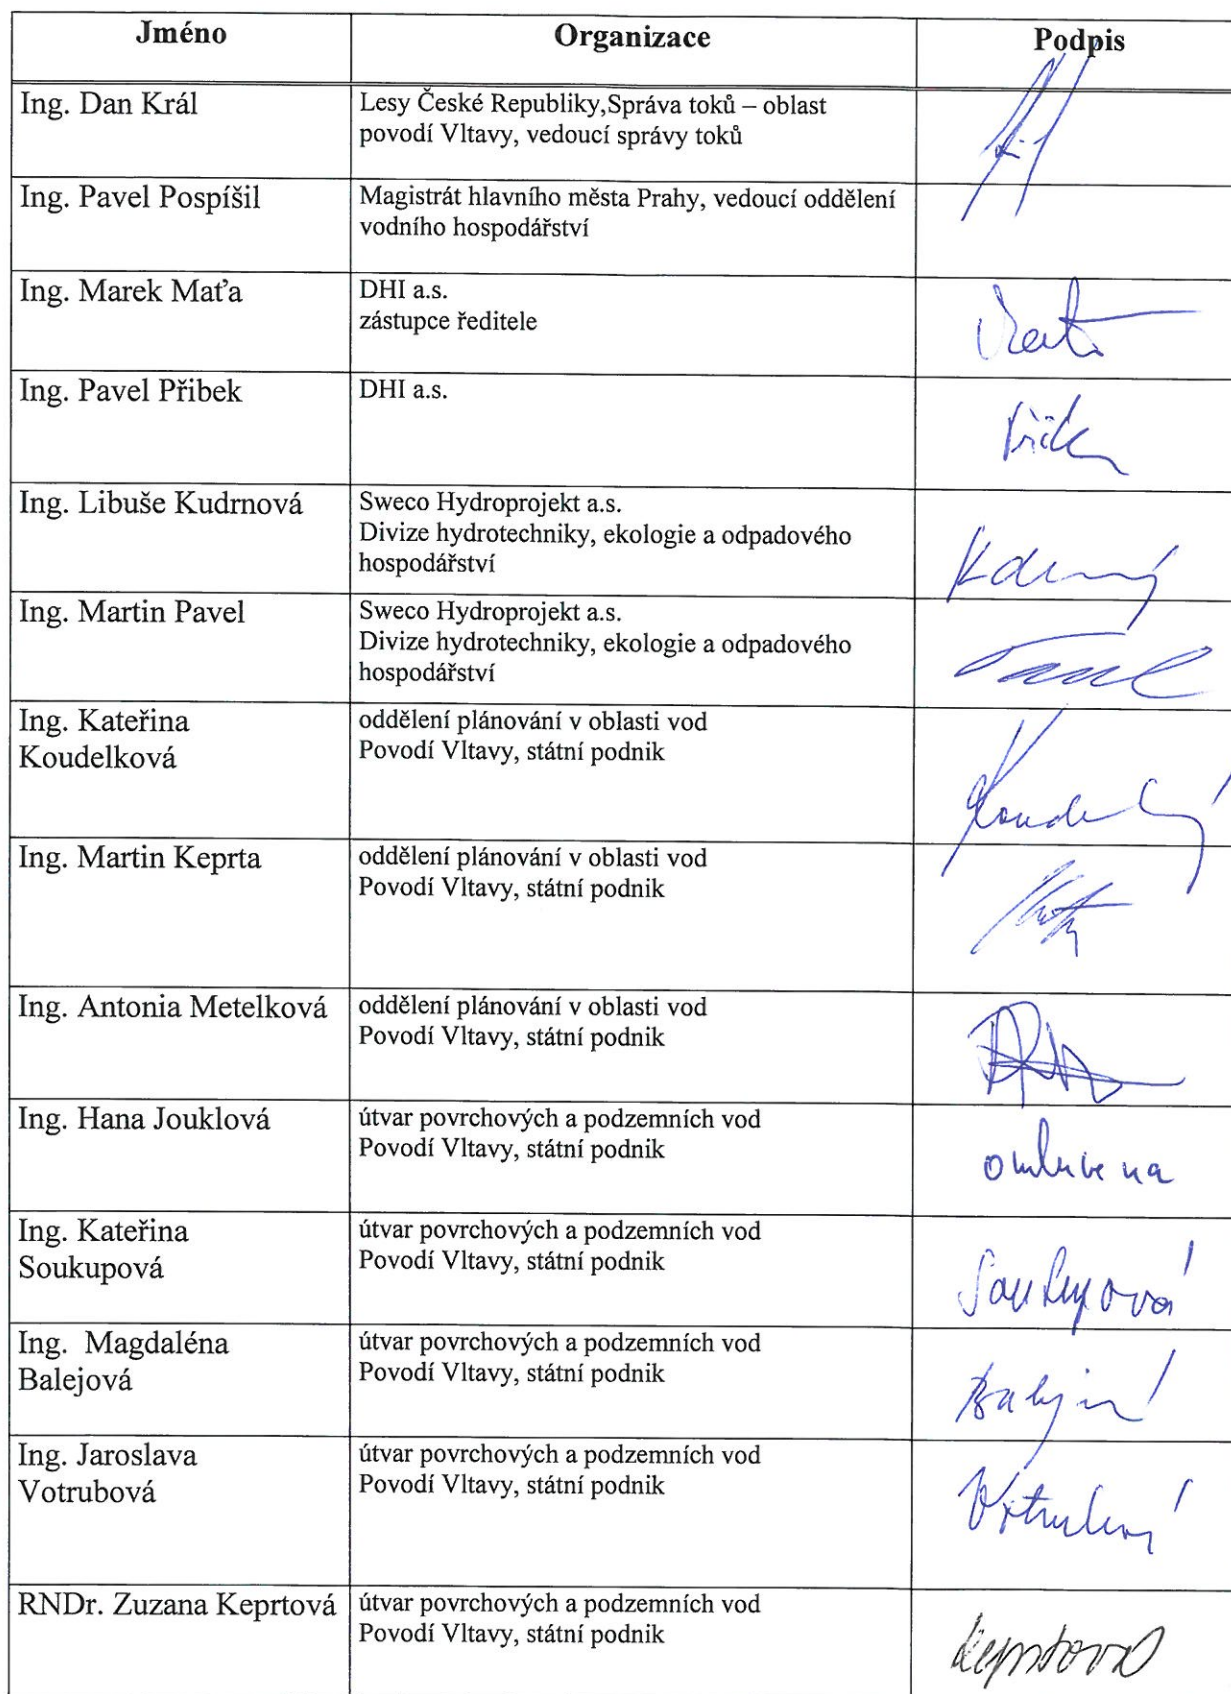 Jméno Organizace Podpis
Ing. Dan Král Lesy České Republiky,Správa toků – oblast
povodí Vltavy, vedoucí správy toků
Ing. Pavel Pospíšil Magistrát hlavního města Prahy, vedoucí oddělení
vodního hospodářství
Ing. Marek Maťa DHI a.s.
zástupce ředitele
Ing. Pavel Přibek DHI a.s.
Ing. Libuše Kudrnová Sweco Hydroprojekt a.s.
Divize hydrotechniky, ekologie a odpadového
hospodářství
Ing. Martin Pavel Sweco Hydroprojekt a.s.
Divize hydrotechniky, ekologie a odpadového
hospodářství
Ing. Kateřina oddělení plánování v oblasti vod
Koudelková Povodí Vltavy, státní podnik
Ing. Martin Keprta oddělení plánování v oblasti vod
Povodí Vltavy, státní podnik
Ing. Antonia Metelková oddělení plánování v oblasti vod
Povodí Vltavy, státní podnik
Ing. Hana Jouklová útvar povrchových a podzemních vod
Povodí Vltavy, státní podnik
omluvena
Ing. Kateřina útvar povrchových a podzemních vod
Soukupová Povodí Vltavy, státní podnik
Soukupová
Ing. Magdaléna útvar povrchových a podzemních vod
Balejová Povodí Vltavy, státní podnik
Ing. Jaroslava útvar povrchových a podzemních vod
Votrubová Povodí Vltavy, státní podnik
RNDr. Zuzana Keprtová útvar povrchových a podzemních vod
Povodí Vltavy, státní podnik
Keprtová